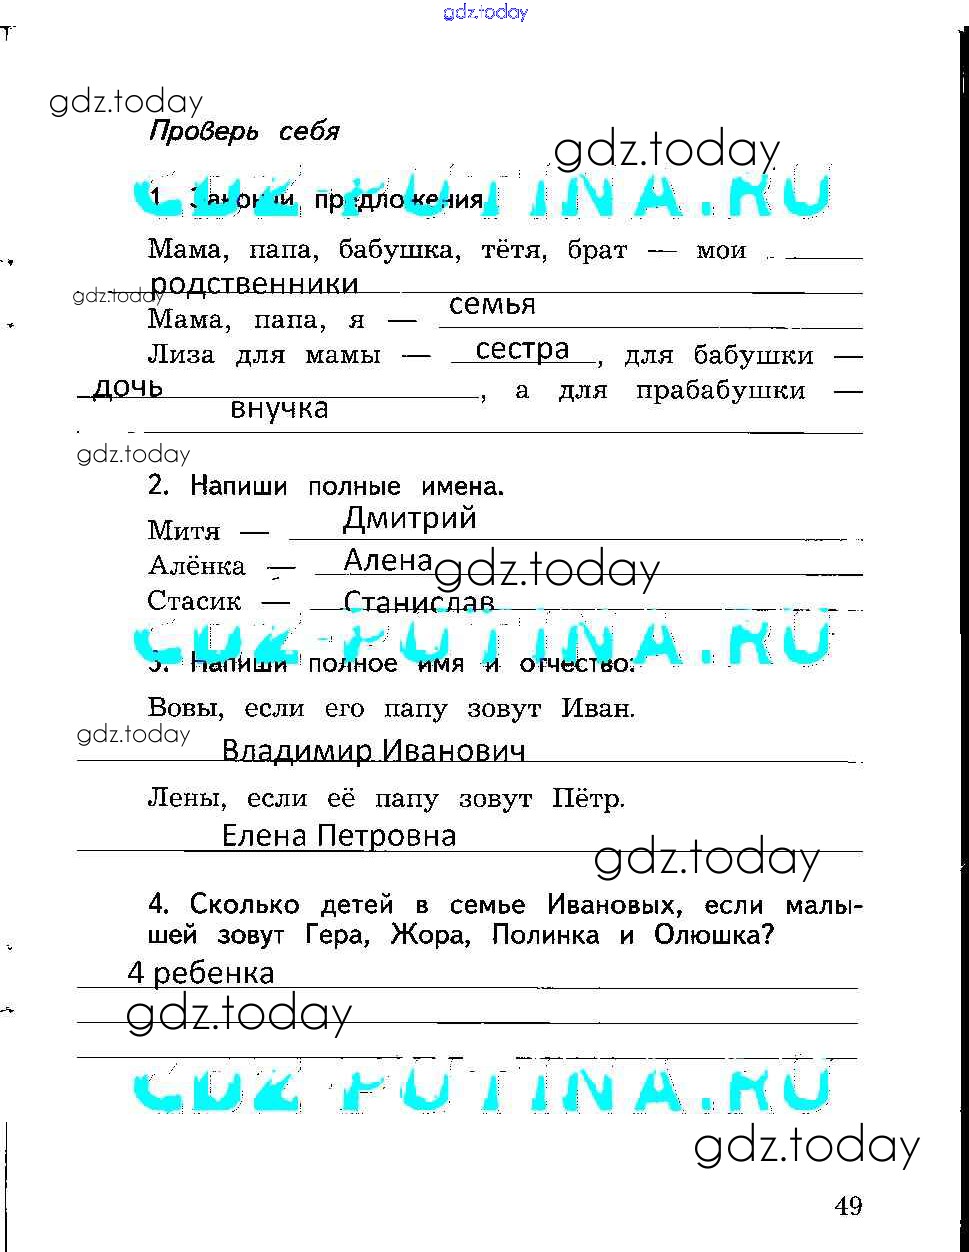 gdz.today
gdz.today
Проверь себя
gdz.today
GDZ-PUTINA.RU
1. Закончи предложения.
Мама, папа, бабушка, тётя, брат — мои
родственники
gdz.today
семья
Мама, папа, я —
Лиза для мамы — сестра, для бабушки —
дочь, а для прабабушки —
внучка
gdz.today
2. Напиши полные имена.
Митя — Дмитрий
Алёнка — Алена
gdz.today
Стасик — Станислав
GDZ-PUTINA.RU
3. Напиши полное имя и отчество:
Вовы, если его папу зовут Иван.
gdz.today
Владимир Иванович
Лены, если её папу зовут Пётр.
Елена Петровна
gdz.today
4. Сколько детей в семье Ивановых, если малы-
шей зовут Гера, Жора, Полинка и Олюшка?
4 ребенка
gdz.today
GDZ-PUTINA.RU
gdz.today
49